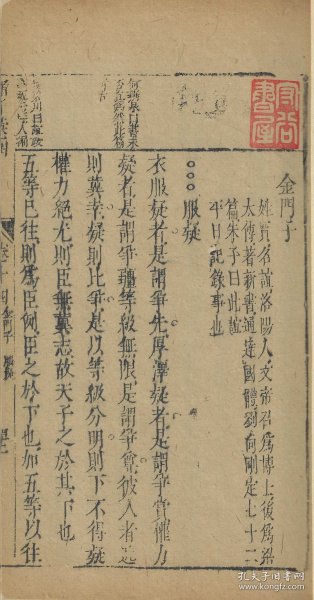 金門子
姓賈名誼洛陽人文帝召爲博士後爲梁
太傅著新書通達國體劉向刪定七十二
篇朱子曰此誼
平日記錄事也
服疑
衣服疑者是謂爭先厚澤疑者是謂爭賞權力
疑者是謂爭彊等級無限是謂爭尊彼人者近
則冀幸疑則比爭是以等級分明則下不得疑
權力絕尤則臣無冀志故天子之於其下也
五等已往則爲臣例臣之於下也加五等以往
孔夫子旧书网